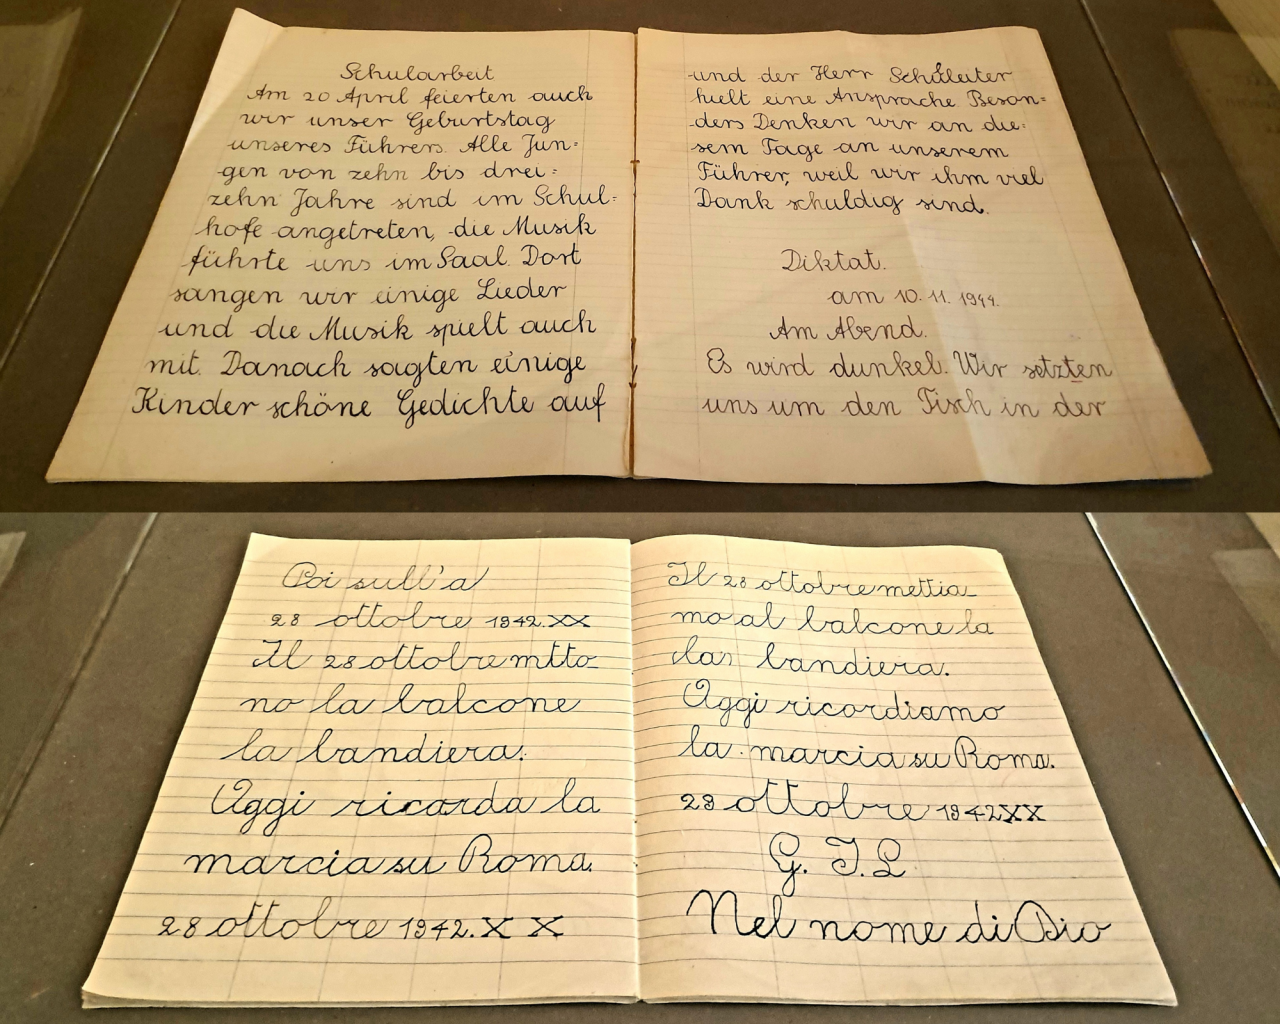 Schularbeit
Am 20 April feierten auch
wir unser Geburtstag
unseres Führers. Alle Jun=
gen von zehn bis drei=
zehn Jahre sind im Schul=
hofe angetreten, die Musik
führte uns im Saal. Dort
sangen wir einige Lieder
und die Musik spielt auch
mit. Danach sagten einige
Kinder schöne Gedichte auf
und der Herr Schulleiter
hielt eine Ansprache Beson=
ders Denken wir an die=
sem Tage an unserem
Führer, weil wir ihm viel
Dank schuldig sind.
Diktat.
am 10. 11. 1944.
Am Abend.
Es wird dunkel. Wir setzten
uns um den Tisch in der
Poi sull'a
28 ottobre 1942.XX
Il 28 ottobre mtto
no la balcone
la bandiera.
Aggi ricorda la
marcia su Roma.
28 ottobre 1942.X X
Il 28 ottobre mettia
mo al balcone la
la bandiera.
Oggi ricordiamo
la marcia su Roma.
29 ottobre 1942XX
G. I. L
Nel nome di Dio